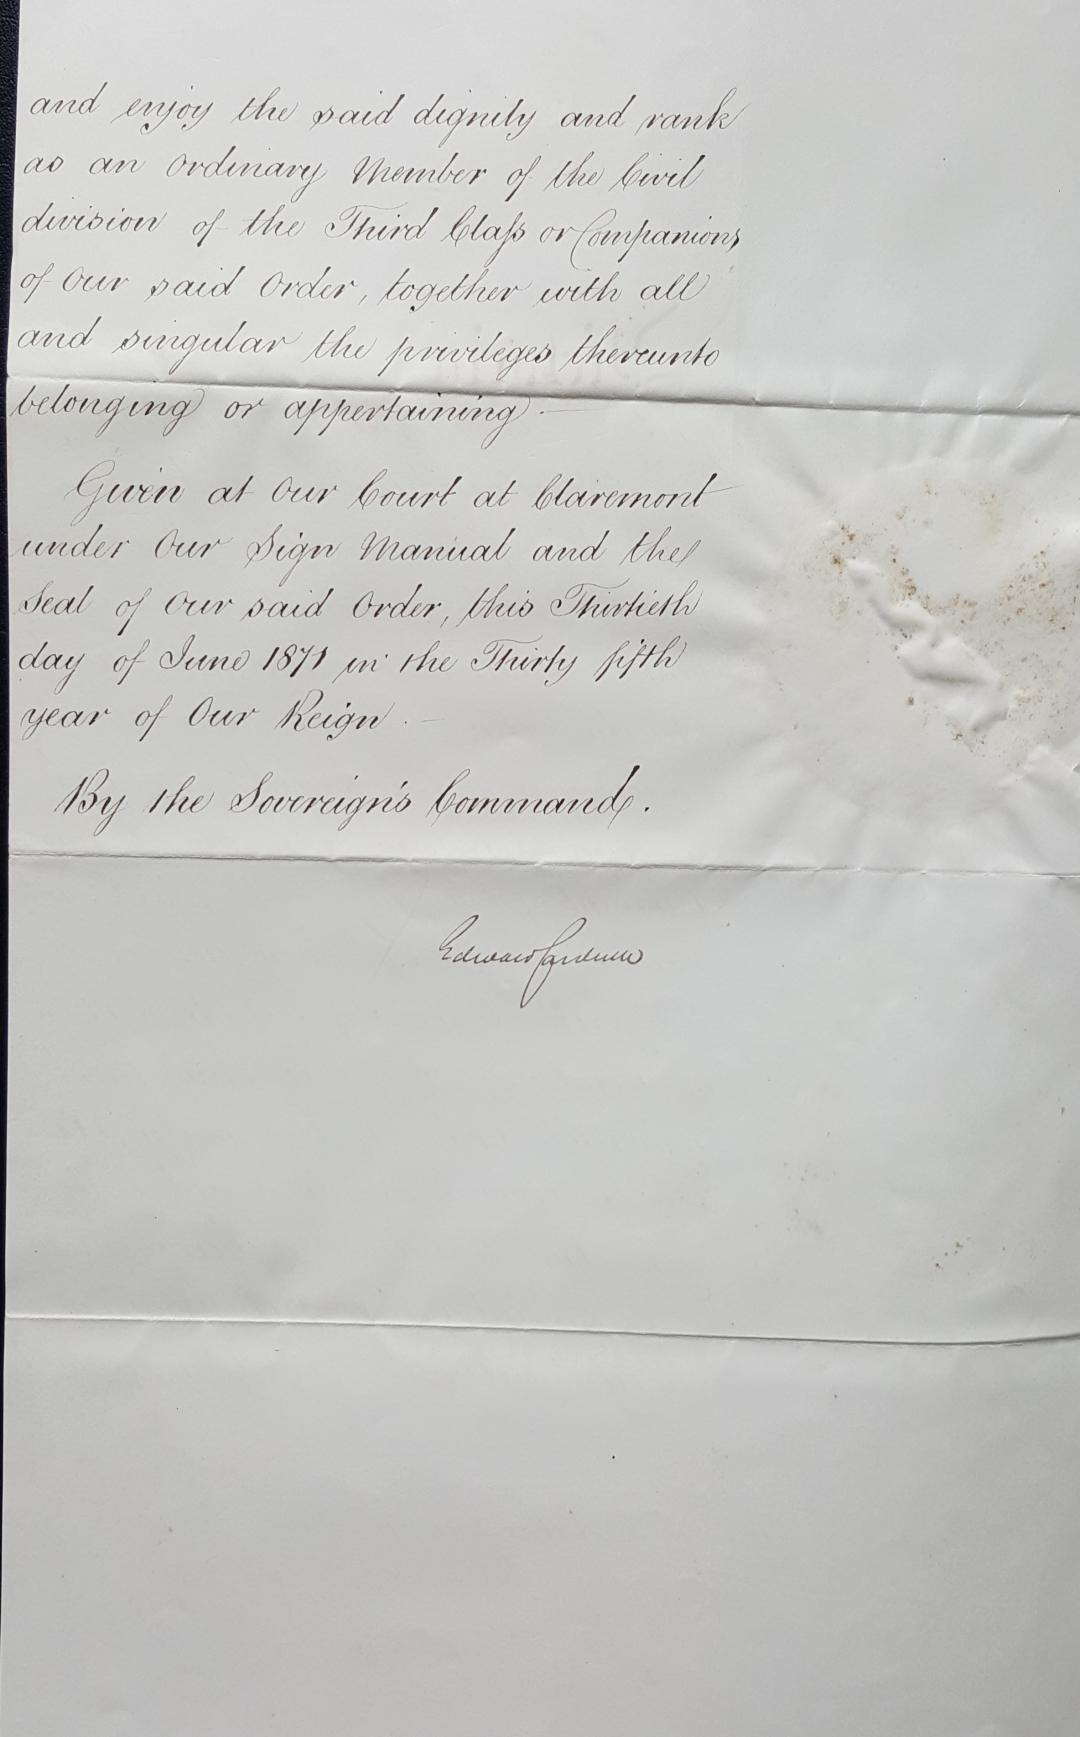 and enjoy the said dignity and rank
as an Ordinary Member of the Civil
division of the Third Claſs or Companions
of Our said Order, together with all
and singular the privileges thereunto
belonging or appertaining. —
Given at Our Court at Claremont
under Our Sign Manual and the
Seal of Our said Order, this Thirtieth
day of June 1871 in the Thirty fifth
year of Our Reign. —
By the Sovereign's Command.
Edward Cardwell